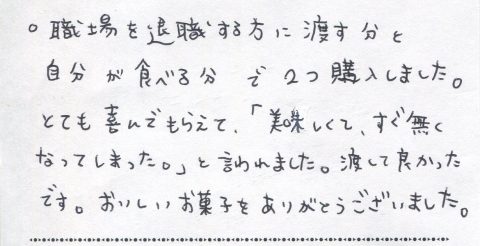 ○ 職場を退職する方に渡す分と
自分が食べる分で2つ購入しました。
とても喜んでもらえて、「美味しくて、すぐ無く
なってしまった。」と言われました。渡して良かった
です。おいしいお菓子をありがとうございました。